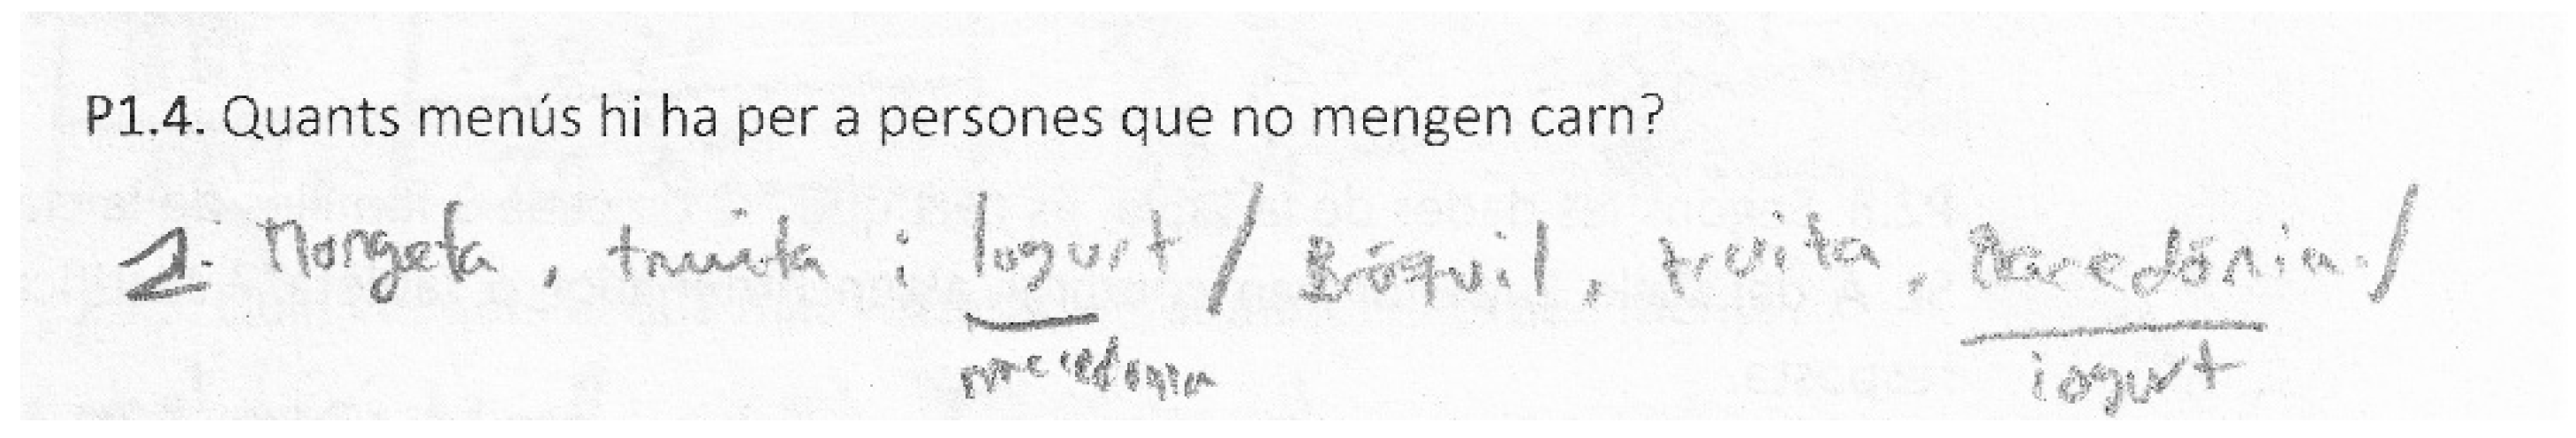 P1.4. Quants menús hi ha per a persones que no mengen carn?
2. Mongeta, truita i Iogurt / Bróquil, truita, Macedònia. /
macedonia
iogurt